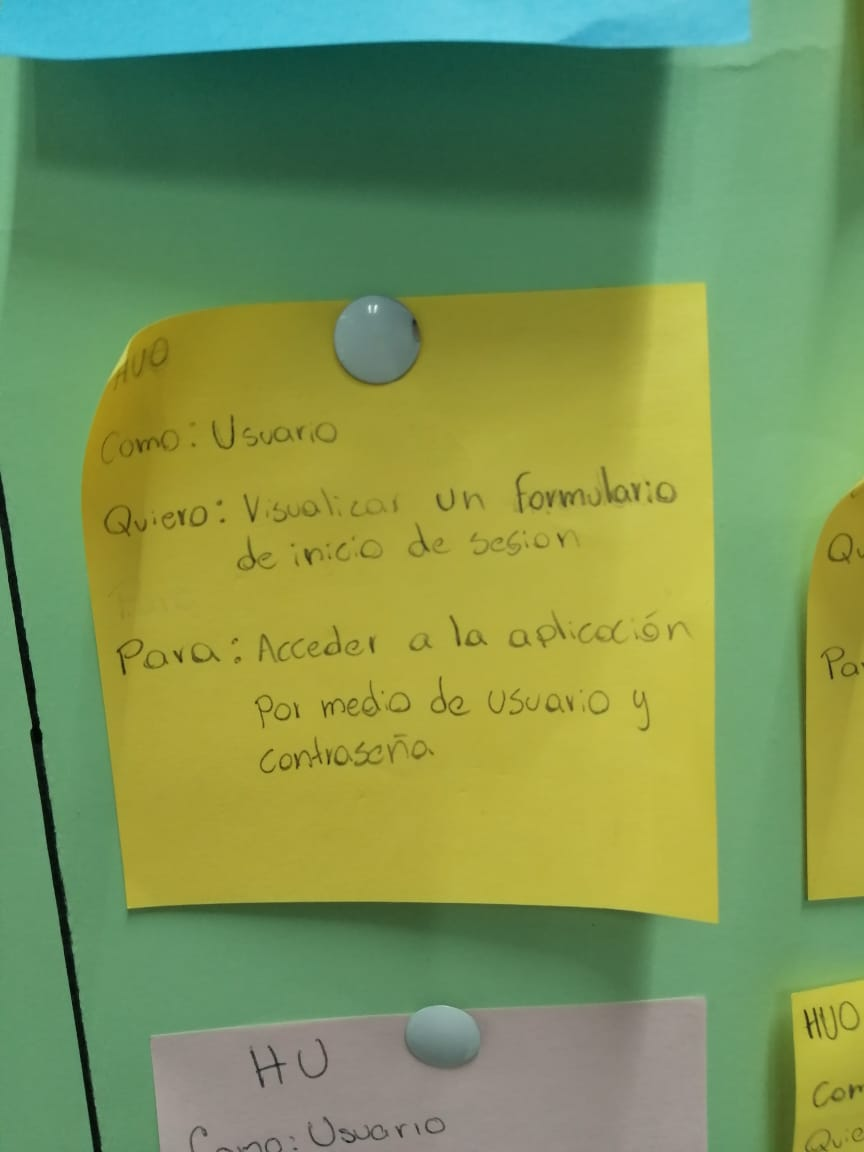 HUO
Como: Usuario
Quiero: Visualizar un formulario
de inicio de sesion
Para: Acceder a la aplicación
Por medio de usuario y
contraseña
HU
Como: Usuario
Qu
Pa
HUO
Com
Quie